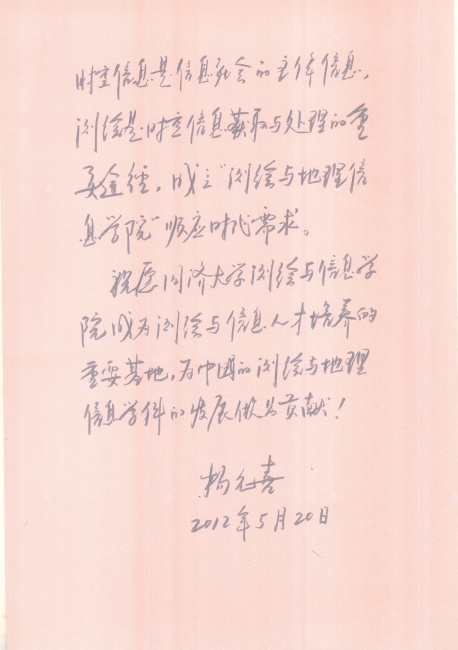 时空信息是信息社会的主体信息，
测绘是时空信息获取与处理的重
要途径，成立“测绘与地理信
息学院”顺应时代需求。
祝愿同济大学测绘与信息学
院成为测绘与信息人才培养的
重要基地，为中国的测绘与地理
信息学科的发展做出贡献！
杨元喜
2012年5月20日